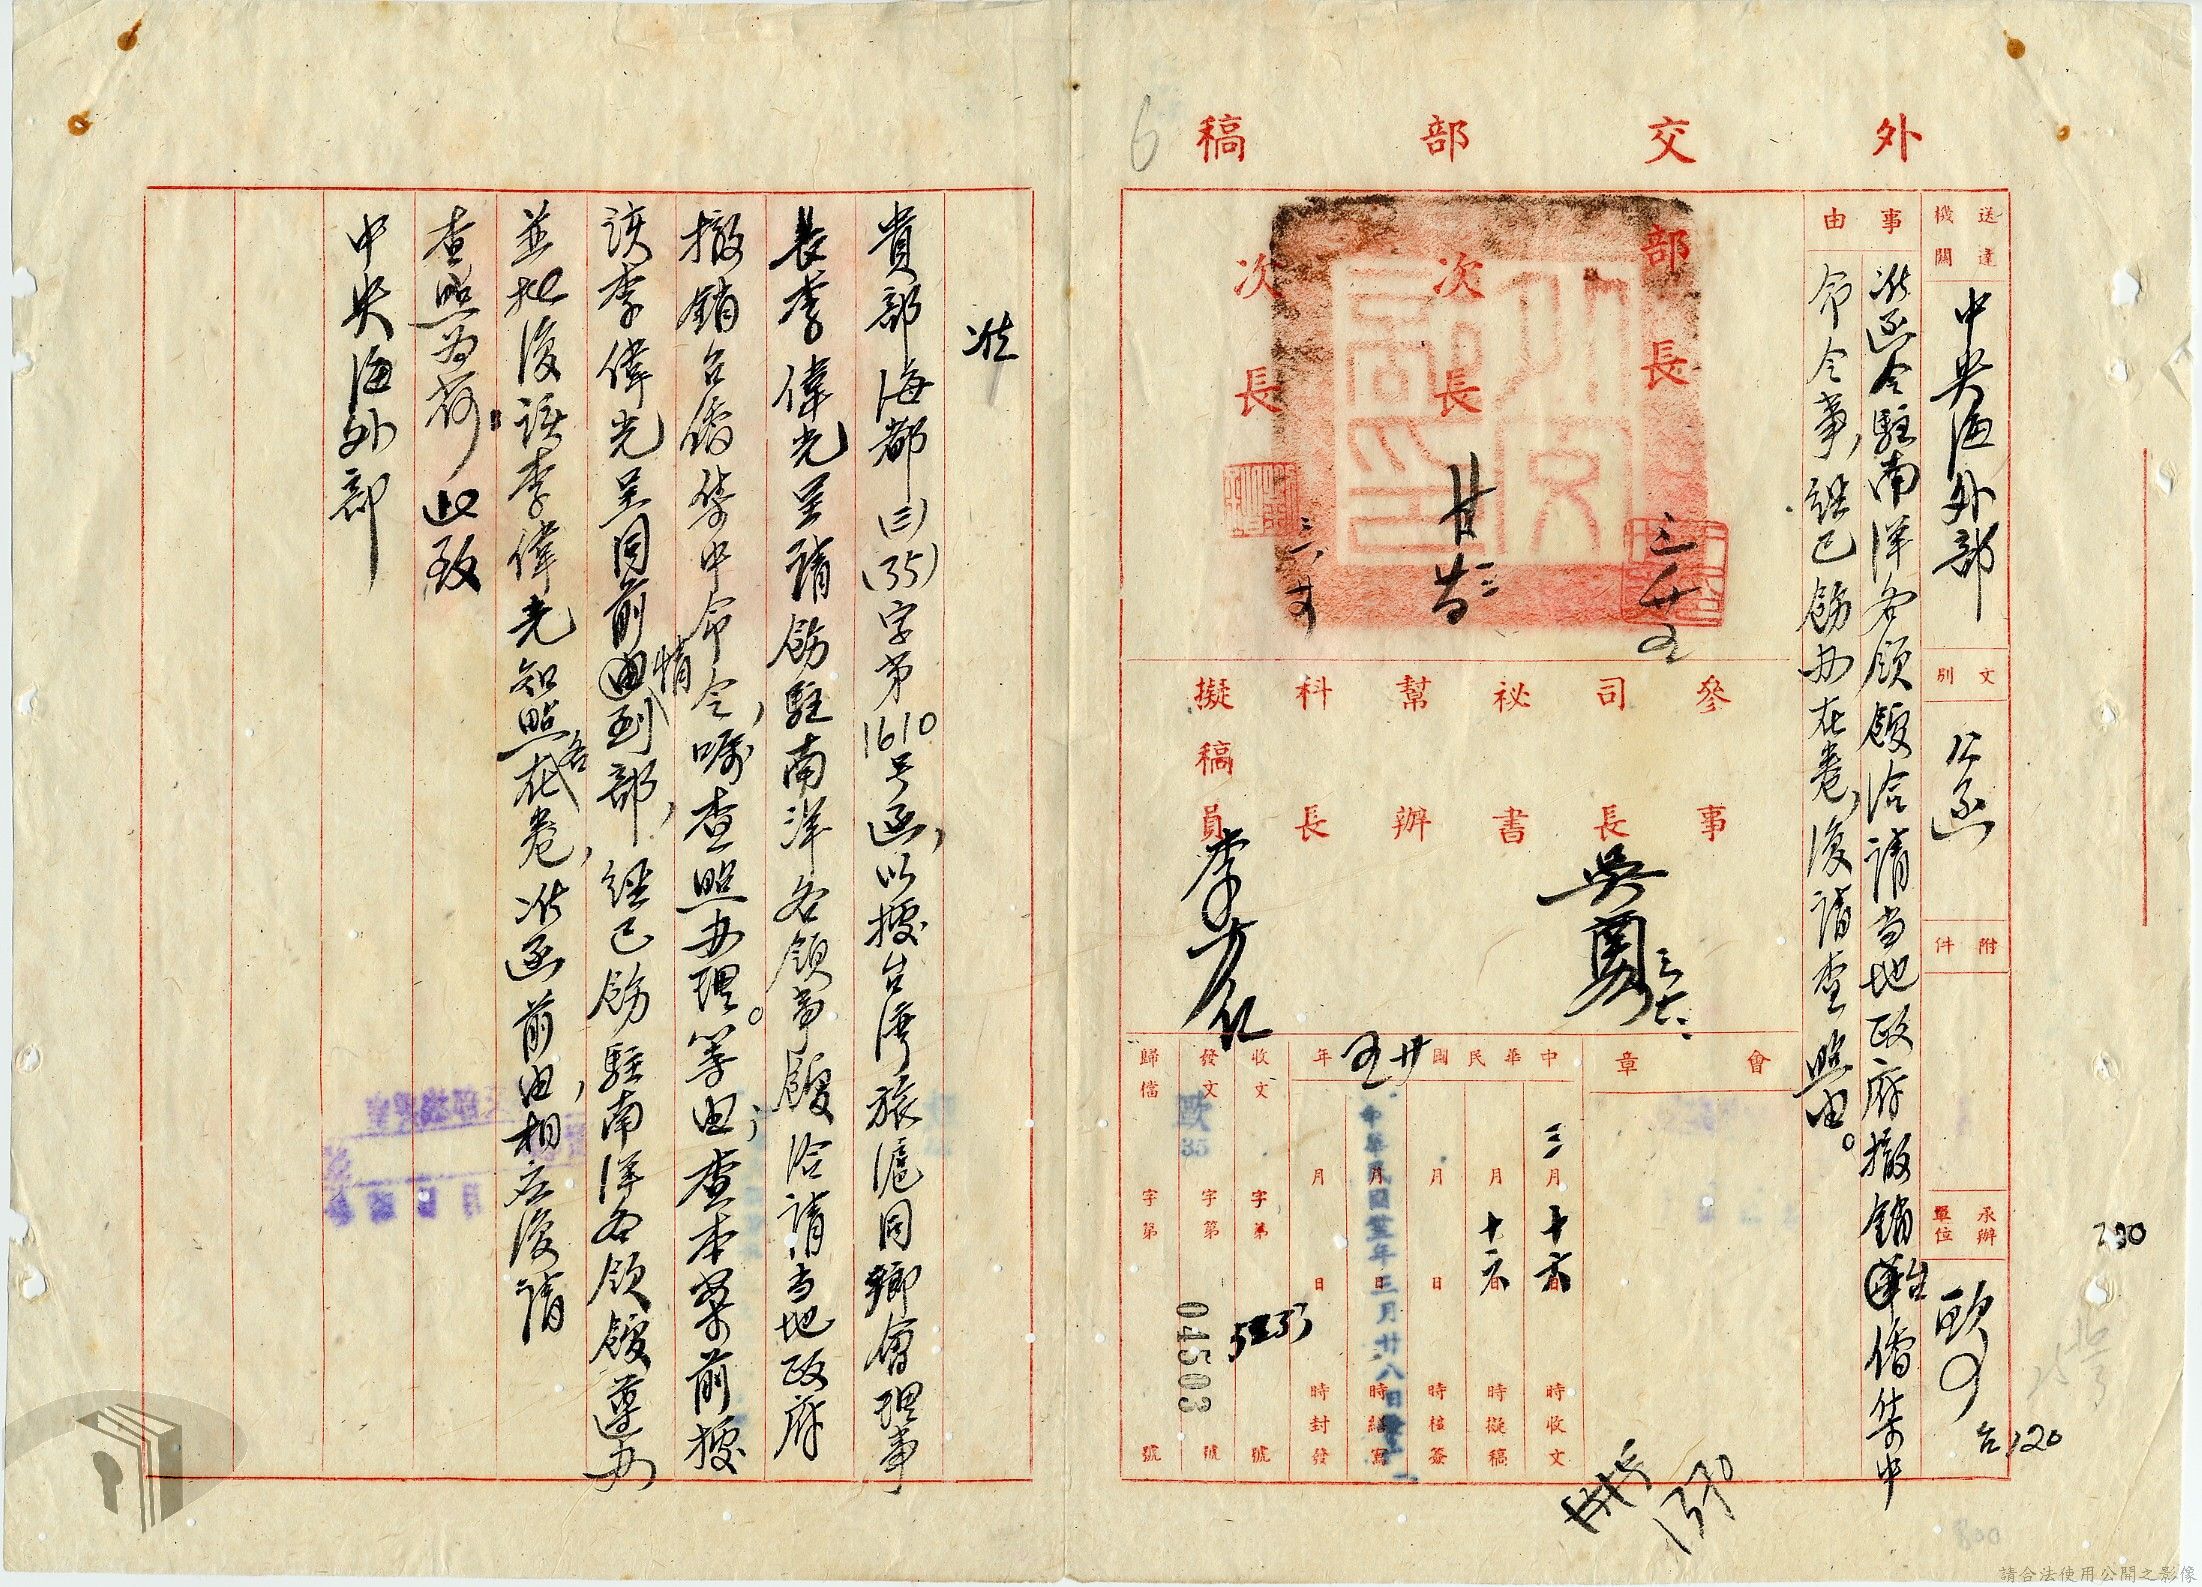 外交部稿
6
送達機關
中央海外部
文別
公函
附件
承辦單位
歐
台120
事由
准函令駐南洋各領館洽請当地政府撤銷台僑集中
命令事,經已飭办在卷,復請查照由。
部長
次長
次長
參事
司長
祕書
幫辦
科長
擬稿員
李方仁
會章
中華民國卅五年
三月十六日 時收文
月十六日 時擬稿
月 日 時核簽
月 日 時繕寫
月 日 時封發
中華民國卅五年三月廿八日
收文 字第 號
發文 歐35 字第 04503 號
歸檔 字第 號
准
貴部海都(三)(35)字第1610号函,以據台灣旅滬同鄉會理事
長李偉光呈請飭駐南洋各領事館洽請当地政府
撤銷台僑集中命令,囑查照办理。等由;查本案前據
該李偉光呈同前情到部,經已飭駐南洋各領館遵办
並批復該李偉光知照各在卷,准函前由,相应復請
查照為荷!此致
中央海外部
請合法使用公開之影像